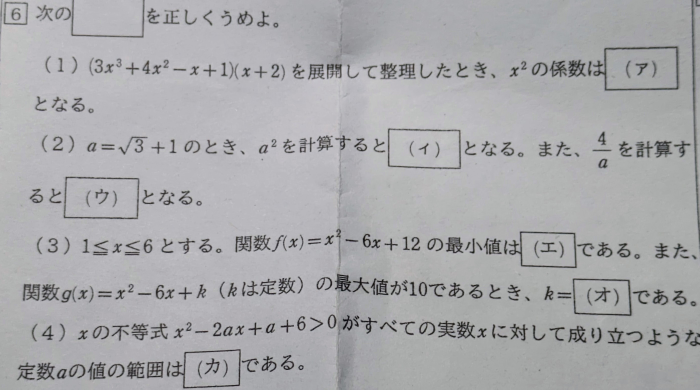 6 次の を正しくうめよ。
(1) (3x³+4x²−x+1)(x+2) を展開して整理したとき、x²の係数は (ア)
となる。
(2) a=√3+1 のとき、a²を計算すると (イ) となる。また、4/a を計算す
ると (ウ) となる。
(3) 1≦x≦6 とする。関数f(x)=x²−6x+12 の最小値は (エ) である。また、
関数g(x)=x²−6x+k (kは定数) の最大値が10であるとき、k= (オ) である。
(4) xの不等式 x²−2ax+a+6>0 がすべての実数xに対して成り立つような
定数aの値の範囲は (カ) である。